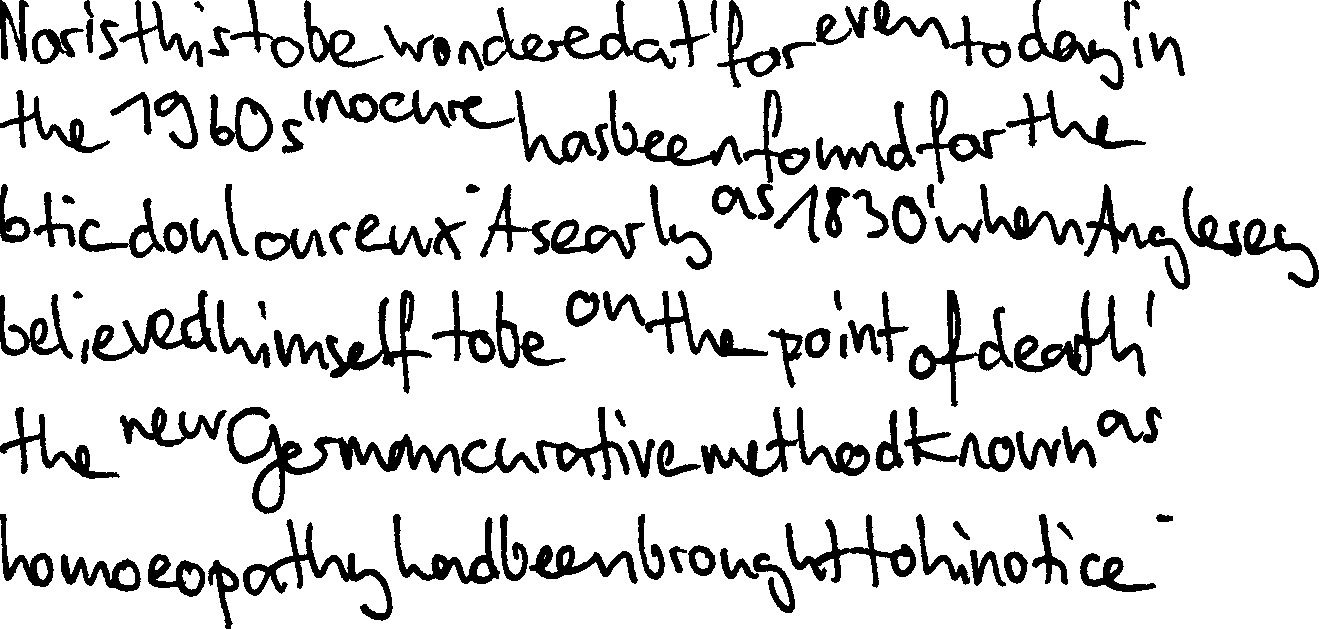 Nor is this to be wondered at, for even today, in
the 1960s, no cure has been found for the
tic douloureux. As early as 1830, when Anglesey
believed himself to be on the point of death,
the new German curative method known as
homoeopathy had been brought to hi notice.